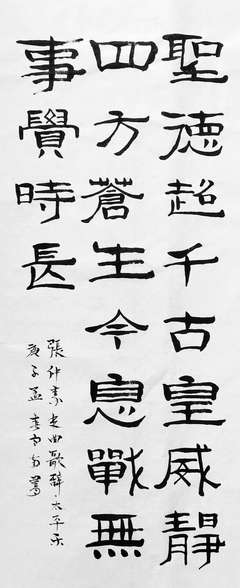 聖德超千古皇威靜
四方蒼生今息戰無
事覺時長
張仲素曲歌辭太平樂
庚子孟春